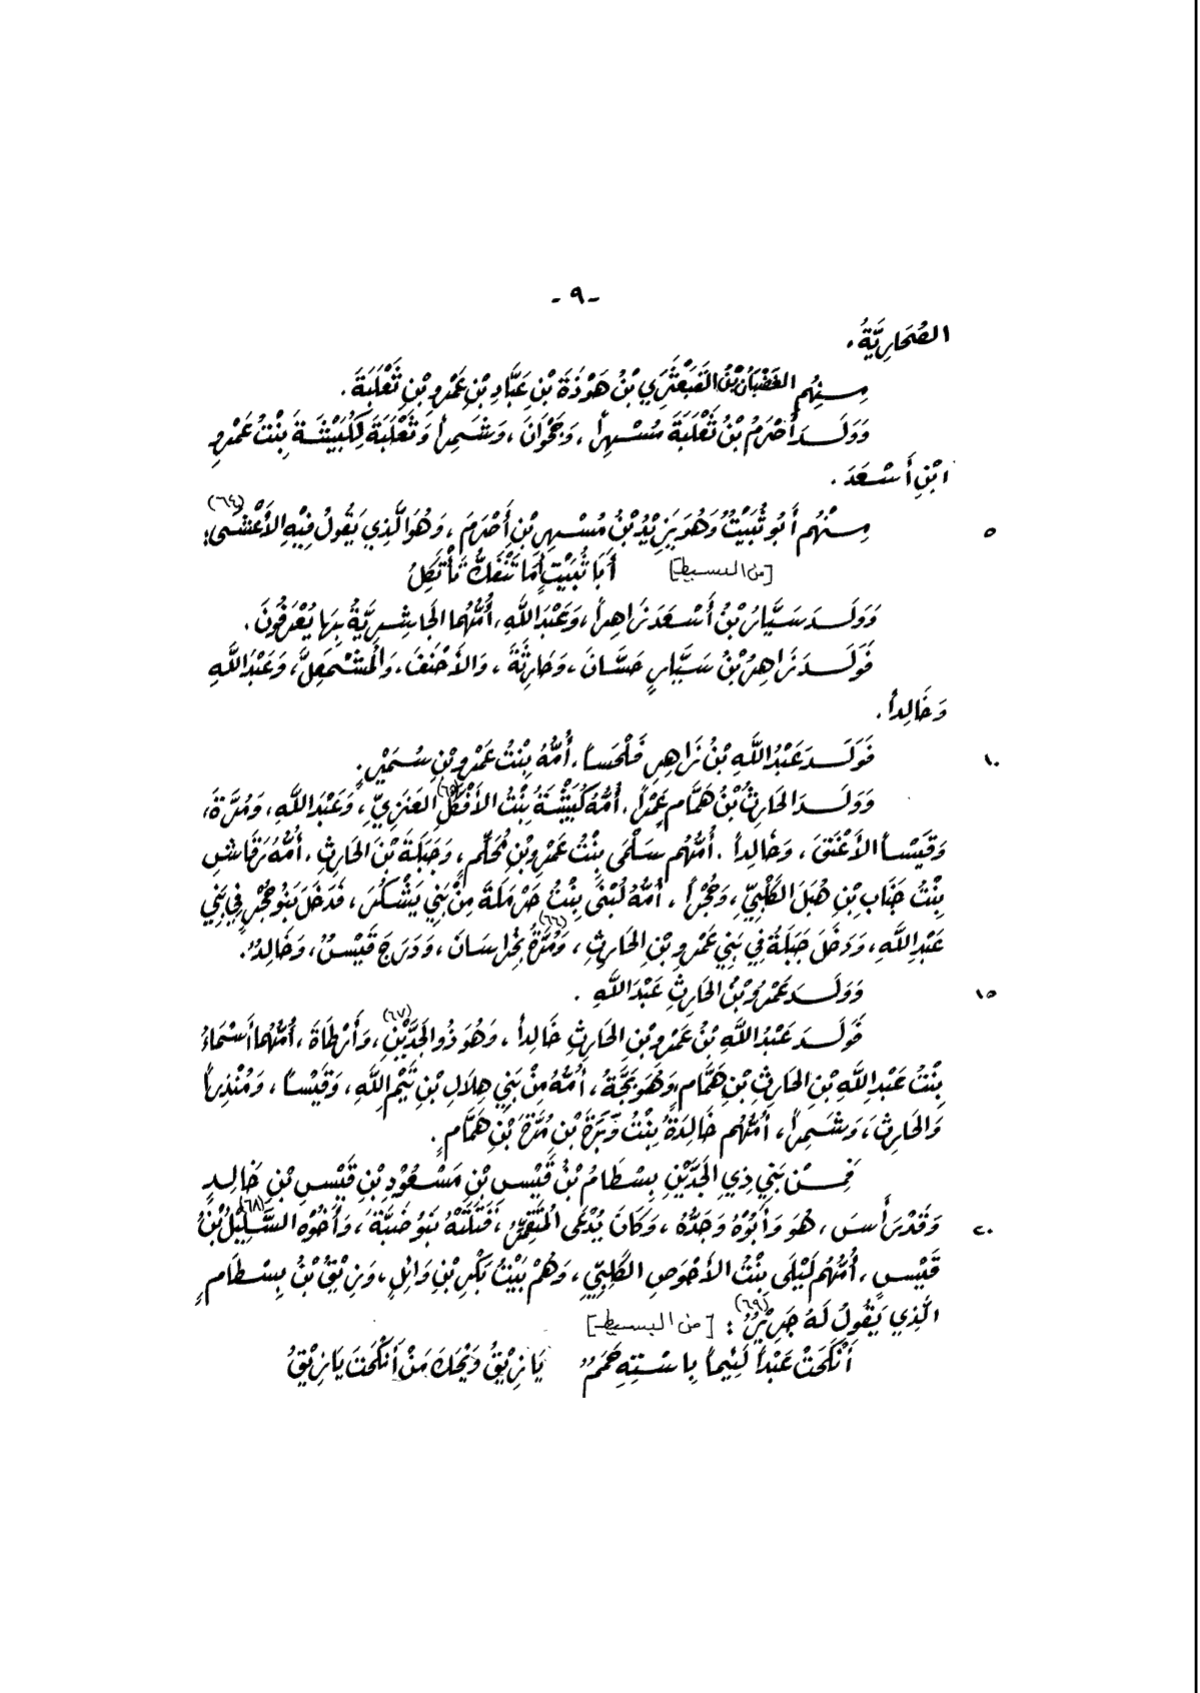 - ٩ -
الصُّحَارِيَّةُ.
مِنْهُم الغَضْبَانُ بْنُ القَبَعْثَرَى بْنُ هَوْذَةَ بْنِ عَبَّادِ بْنِ عَمْرِو بْنِ ثَعْلَبَةَ.
وَوَلَدَ أَصْرَمُ بْنُ ثَعْلَبَةَ مُسْهِراً، وَجَحْوَانَ، وَشَمِراً وَثَعْلَبَةَ لِكُبَيْشَةَ بِنْتُ عَمْرِو
ابْنِ أَسْعَدَ.
٥ مِنْهُم أَبُو ثُبَيْتٍ وَهُوَ يَزِيْدُ بْنُ مُسْهِرِ بْنِ أَصْرَمَ، وَهُوَ الَّذِي يَقُولُ فِيْهِ الأَعْشَى: (٦٤)
[من البسيط] أَبَا ثُبَيْتٍ أَمَا تَنْفَكُّ تَأْتَكِلُ
وَوَلَدَ سَيَّارُ بْنُ أَسْعَدَ زَاهِراً، وَعَبْدَ اللَّهِ، أُمُّهُما الجَاشِرِيَّةُ بِهَا يُعْرَفُونَ.
فَوَلَدَ زَاهِرُ بْنُ سَيَّارٍ حَسَّانَ، وَحَارِثَةَ، وَالأَحْنَفَ، وَالمُشْمَعِلَّ، وَعَبْدَ اللَّهِ
وَخَالِداً.
١٠ فَوَلَدَ عَبْدُ اللَّهِ بْنُ زَاهِرٍ فَلْحَساً، أُمُّهُ بِنْتُ عَمْرِو بْنِ سُمَيْرٍ.
وَوَلَدَ الحَارِثُ بْنُ هَمَّامٍ عَمْراً، أُمُّهُ كُبَيْشَةُ بِنْتُ الأَفْكَلِ (٦٥) العَنَزِيِّ، وَعَبْدَ اللَّهِ، وَمُرَّةَ،
وَقَيْساً الأَعْنَقَ، وَخَالِداً. أُمُّهُم سَلْمَى بِنْتُ عَمْرِو بْنِ مُحَلِّمٍ، وَجَبَلَةَ بْنَ الحَارِثِ، أُمُّهُ رَقَاشِ
بِنْتُ جَنَابِ بْنِ هُبَلَ الكَلْبِيِّ، وَحُجْراً، أُمُّهُ لُبْنَى بِنْتُ حَرْمَلَةَ مِنْ بَنِي يَشْكُرَ، فَدَخَلَ بَنُو حُجْرٍ فِي بَنِي
عَبْدِ اللَّهِ، وَدَخَلَ جَبَلَةُ فِي بَنِي عَمْرِو بْنِ الحَارِثِ، وَمُرَّةُ (٦٦) بِخُرَاسَانَ، وَدَرَجَ قَيْسٌ، وَخَالِدٌ.
١٥ وَوَلَدَ عَمْرُو بْنُ الحَارِثِ عَبْدَ اللَّهِ.
فَوَلَدَ عَبْدُ اللَّهِ بْنُ عَمْرِو بْنِ الحَارِثِ خَالِداً، وَهُوَ ذُو الجَدَّيْنِ (٦٧)، وَأَرْطَاةَ، أُمُّهُما أَسْمَاءُ
بِنْتُ عَبْدِ اللَّهِ بْنِ الحَارِثِ بْنِ هَمَّامٍ، وَهُوَ بَجَّةُ، أُمُّهُ مِنْ بَنِي هِلَالِ بْنِ تَيْمِ اللَّهِ، وَقَيْساً، وَمُنْذِراً
وَالحَارِثَ، وَشَمِراً، أُمُّهُم خَالِدَةُ بِنْتُ وَبَرَةَ بْنِ مُرَّةَ بْنِ هَمَّامٍ.
فَمِنْ بَنِي ذِي الجَدَّيْنِ بِسْطَامُ بْنُ قَيْسِ بْنِ مَسْعُوْدِ بْنِ قَيْسِ بْنِ خَالِدٍ
٢٠ وَقَدْ رَأَسَ، هُوَ وَأَبُوْهُ وَجَدُّهُ، وَكَانَ يُدْعَى المُتَقَمِّرُ، قَتَلَتْهُ بَنُو ضَبَّةَ، وَأَخُوْه السَّلِيْلُ (٦٨) بْنُ
قَيْسٍ، أُمُّهُم لَيْلَى بِنْتُ الأَحْوَصِ الكَلْبِيِّ، وَهُمْ بَيْتُ بَكْرِ بْنِ وَائِلٍ، وَزِيْقُ بْنُ بِسْطَامٍ
الَّذِي يَقُولُ لَهُ جَرِيْرٌ (٦٩): [من البسيط]
أَنْكَحْتَ عَبْداً لَئِيماً بِاسْتِهِ حَمَمٌ يَا زِيْقُ وَيْحَكَ مَنْ أَنْكَحْتَ يَا زِيْقُ